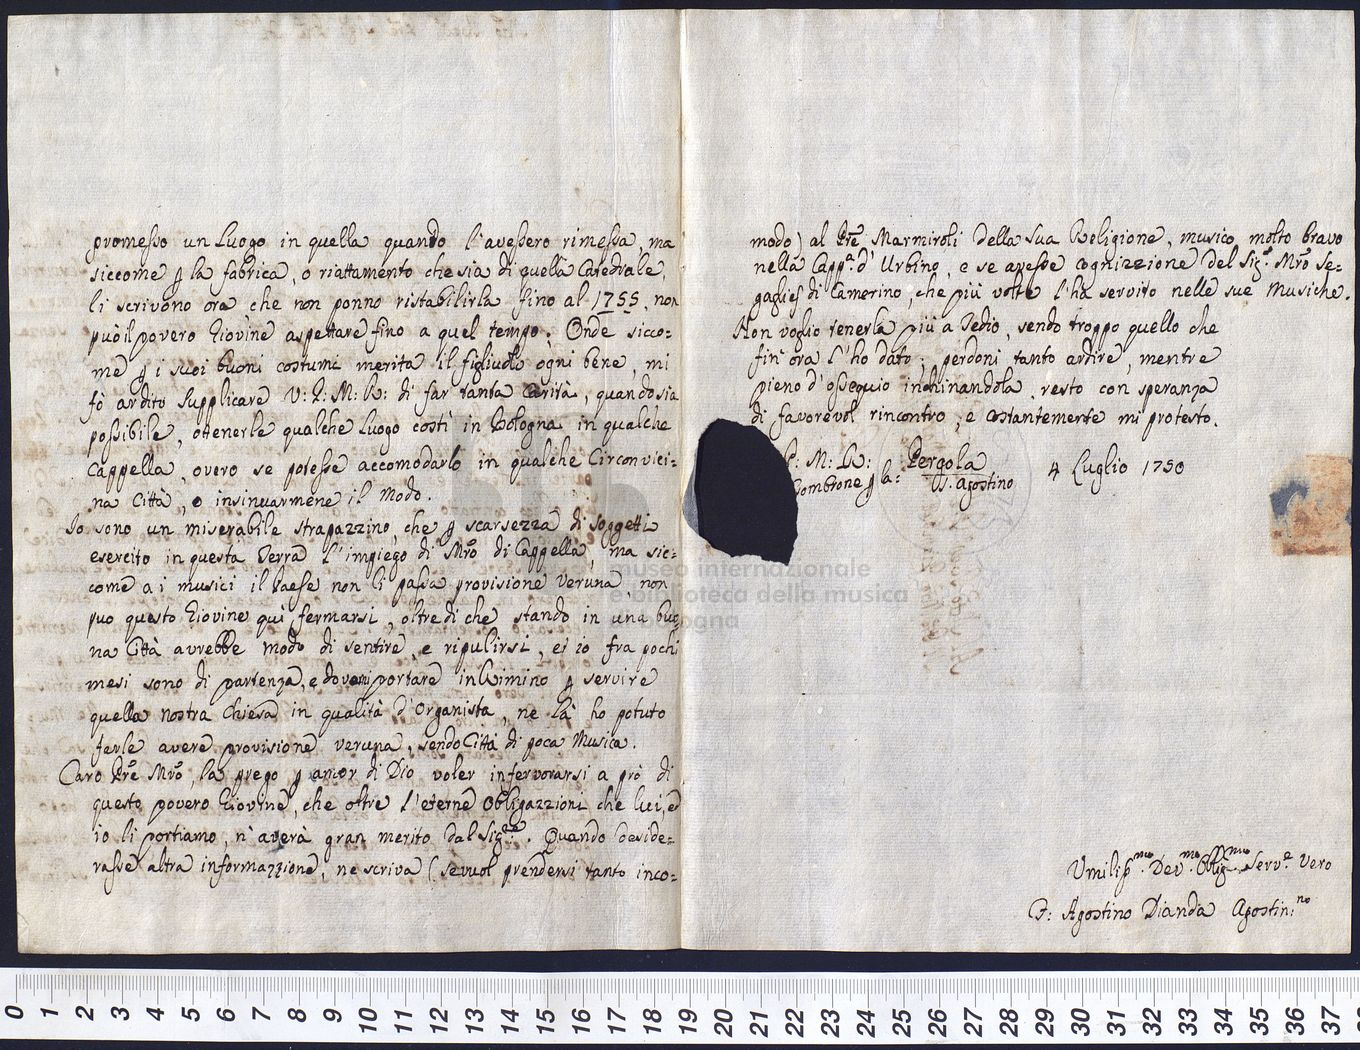 promesso un Luogo in quella quando l'avessero rimessa, ma
siccome p la fabrica, o riattamento che sia di quella Catedrale,
li scrivono ora che non ponno ristabilirla fino al 1755, non
può il povero Giovine aspettare fino a quel tempo; Onde sicco-
me p i suoi buoni costumi merita il figliuolo ogni bene, mi
fò ardito supplicare V: P: M: R: di far tanta Carità, quando sia
possibile, ottenerle qualche Luogo costì in Bologna in qualche
Cappella, overo se potesse accomodarlo in qualche Circonvici-
na Città, o insinuarmene il modo.
Io sono un miserabile strapazzino, che p scarsezza di soggetti
esercito in questa Terra l'impiego di Mro di Cappella, ma sic-
come a i musici il Paese non li passa provisione veruna, non
può questo Giovine quì fermarsi, oltre di che stando in una buo-
na Città avrebbe modo di sentire, e ripulirsi, et io fra pochi
mesi sono di partenza, e dovermi portare in Rimino p servire
quella nostra Chiesa in qualità d'Organista, ne là ho potuto
ferle avere provisione veruna, sendo Città di poca Musica.
Caro Pre Mro, la prego p amor di Dio voler infervorarsi a prò di
questo povero Giovine, che oltre l'eterne Obligazzioni che lui, ed
io li portiamo, n'averà gran merito dal Sige. Quando deside-
rasse altra informazzione, ne scriva (se vuol prendersi tanto inco-
modo) al Pre Marmiroli della sua Religione, musico molto bravo
nella Cappa d'Urbino, e se avesse cognizzione del Sigr Mro Se-
gaglies di Camerino, che più volte l'ha servito nelle sue Musiche.
Non voglio tenerla più a Tedio, sendo troppo quello che
fin'ora l'ho dato; perdoni tanto ardire, mentre
pieno d'ossequio inchinandola, resto con speranza
di favorevol rincontro, e costantemente mi protesto.
P: M: R: Pergola 4 Luglio 1750
p la: S. Agostino
Umiliss.mo Dev.mo Oblig.mo Serv.e Vero
F: Agostino Dianda Agostin.no
museo internazionale
e biblioteca della musica
di bologna
0 1 2 3 4 5 6 7 8 9 10 11 12 13 14 15 16 17 18 19 20 21 22 23 24 25 26 27 28 29 30 31 32 33 34 35 36 37